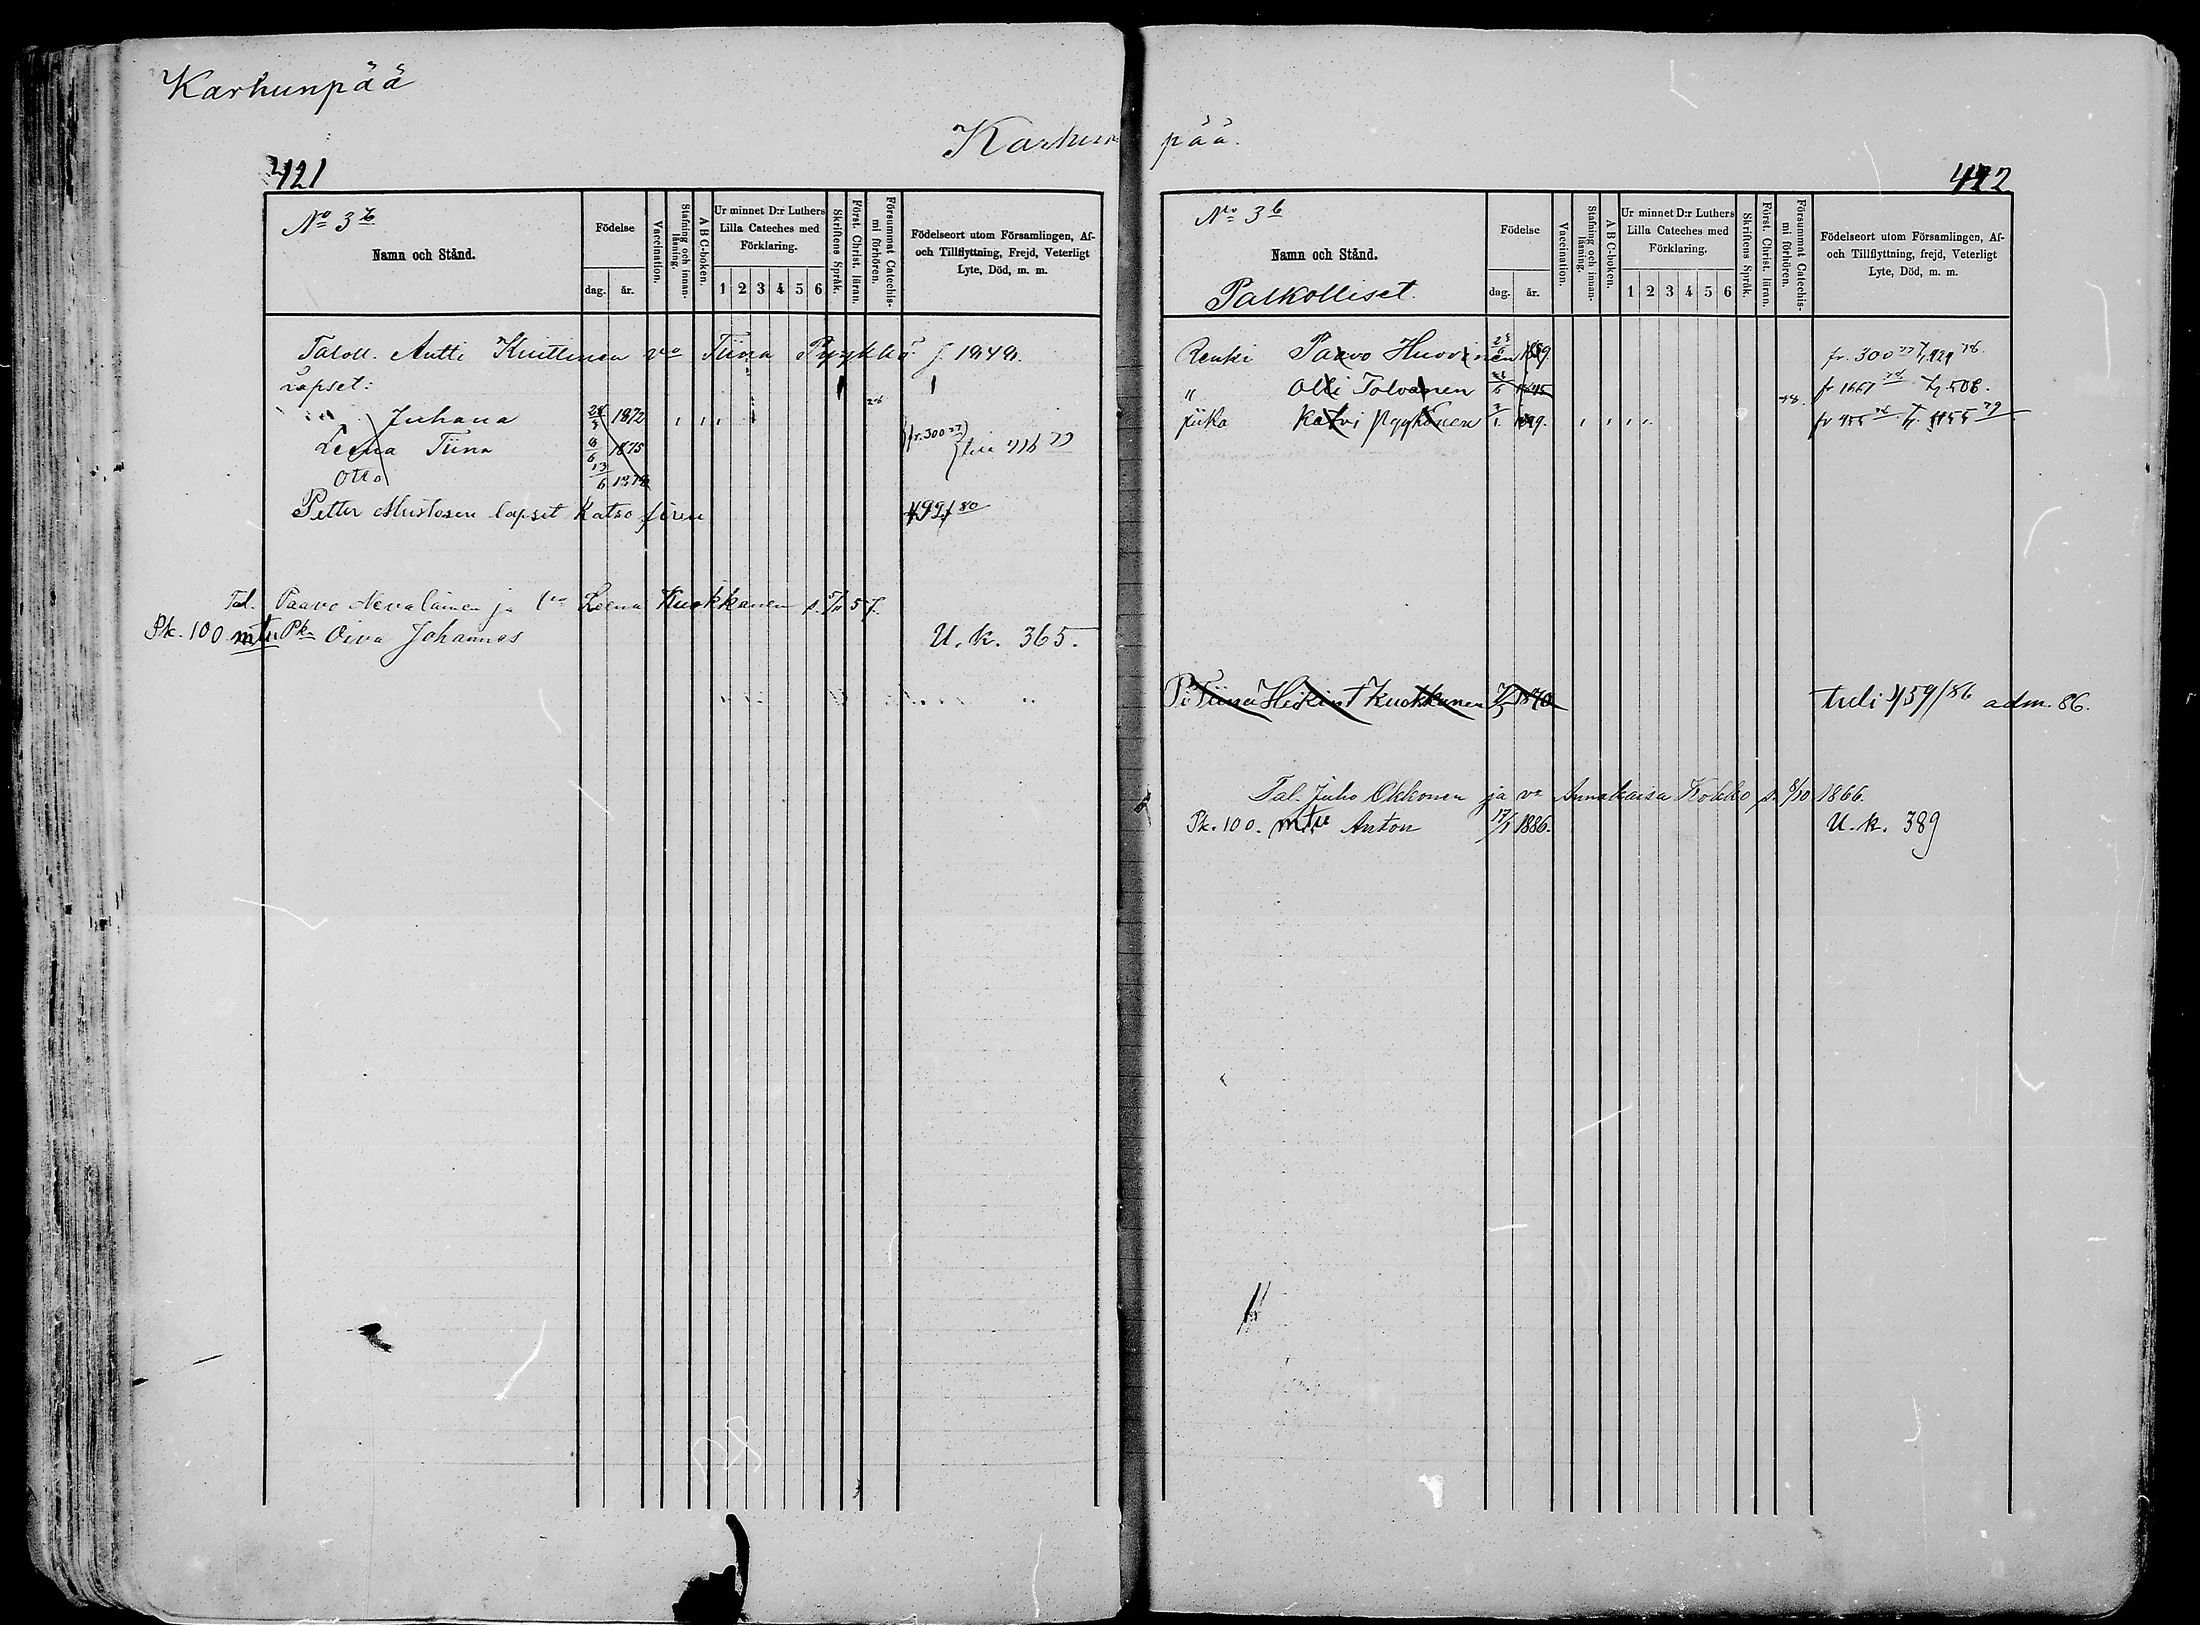 Karhunpää
Karhun
421
No 3 b
Namn och Stånd.
Födelse
dag.
år.
Vaccination.
Stafning och innanläsning.
A B C-boken.
Ur minnet D:r Luthers Lilla Cateches med Förklaring.
1 2 3 4 5 6
Skriftens Språk.
Först. Christ. läran.
Försummat Catechismi förhören.
Födelseort utom Församlingen, Af- och Tillflyttning, Frejd, Veterligt Lyte, Död, m. m.
Taloll. Antti vo Tiina
Lapset:
Juhana 1872
Leena Tiina 1875
fr. 300 77
Otto 13/6 1878
Petter Mustosen lapset Katso
Tal. Paavo Nevalainen ja vo Leena Kuokkanen s. 57.
Pk. 100 mtu Pka Oiva Johannes U. k. 365.
pää.
442
No 3 b
Namn och Stånd.
Palkolliset.
Födelse
dag.
år.
Vaccination.
Stafning och innanläsning.
A B C-boken.
Ur minnet D:r Luthers Lilla Cateches med Förklaring.
1 2 3 4 5 6
Skriftens Språk.
Först. Christ. läran.
Försummat Catechismi förhören.
Födelseort utom Församlingen, Af- och Tillflyttning, frejd, Veterligt Lyte, Död, m. m.
Renki Paavo Huovinen fr. 300 77
" Olli Tolvanen fr 1667 508.
Piika
Pi Tiina Heikint Kuokkanen 1870 tuli 459/86 adm. 86.
Tal. Juho Okkonen ja vo Annakaisa Kokko s. 8/10 1866.
Pk. 100. mtu Anton 17/1 1886. U. k. 389